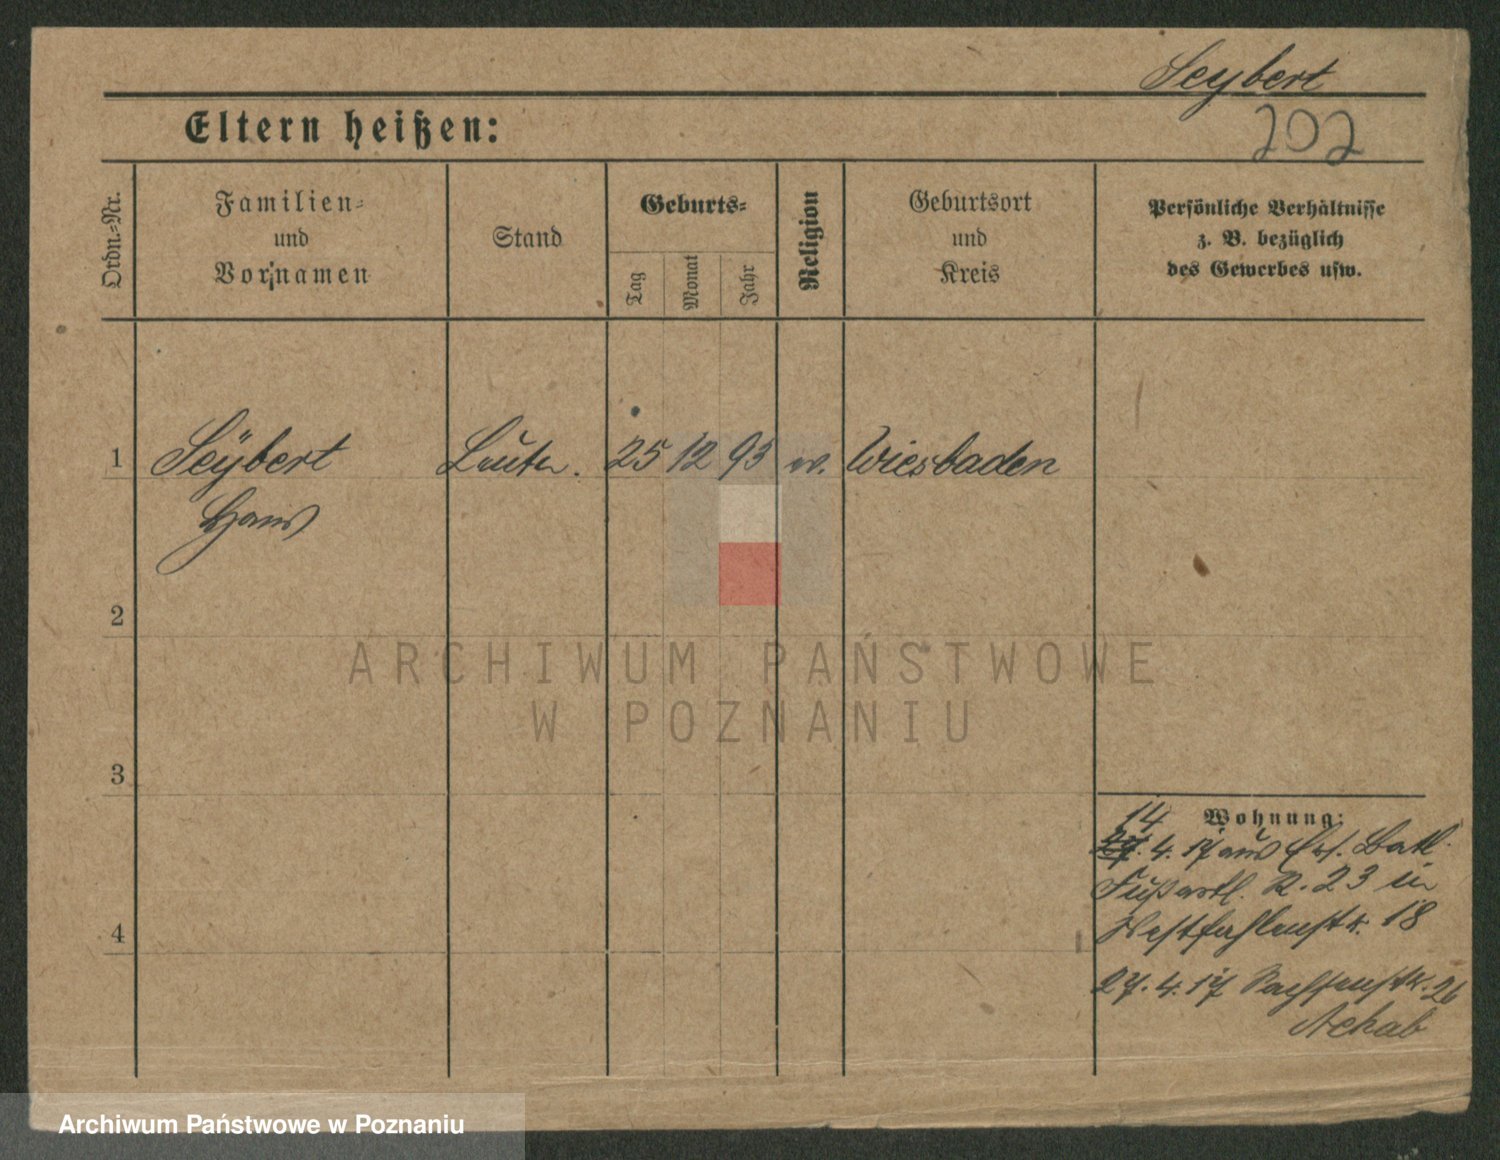 Seybert
202
Eltern heißen:
Ordn.-Nr.
Familien- und Vornamen
Stand
Geburts-
Tag
Monat
Jahr
Religion
Geburtsort und Kreis
Persönliche Verhältnisse
z. B. bezüglich
des Gewerbes usw.
1 Seÿbert Leutn. 25 12 93 ev. Wiesbaden
Hans
2
ARCHIWUM PAŃSTWOWE
W POZNANIU
3
Wohnung:
14
27. 4. 17 aus Ers. Batl.
Fußartl. R. 23 in
Westfahlenstr. 18
4
27. 4. 17 Sachsenstr. 26
Archiwum Państwowe w Poznaniu